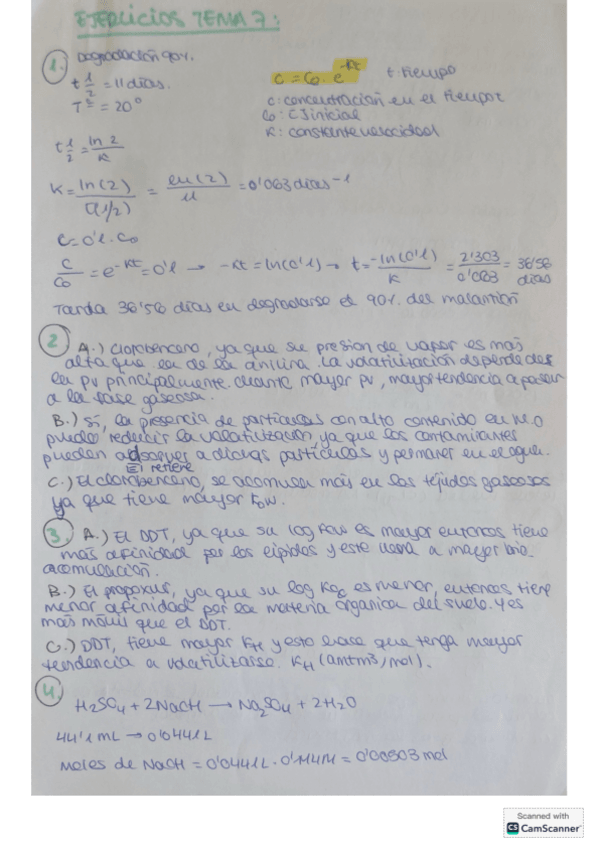 EJERCICIOS TEMA 7:
1. Degradación 90%.
t 1/2 = 11 días.
Tª = 20°
C = C₀ · e^-kt t: tiempo
C: concentración en el tiempo t
C₀: [ ] inicial
K: constante velocidad
t 1/2 = ln 2 / K
K = ln(2) / t(1/2) = ln(2) / 11 = 0'063 días -1
C = 0'1 · C₀
C/C₀ = e^-Kt = 0'1 → -Kt = ln(0'1) → t = -ln(0'1) / K = 2'303 / 0'063 = 36'56 días
Tarda 36'56 días en degradarse el 90% del malatión
2 A.) Clorobenceno, ya que su presión de vapor es más
alta que la de la anilina. La volatilización depende de
la pv principalmente. Cuanto mayor pv, mayor tendencia a pasar
a la fase gaseosa.
B.) Sí, la presencia de partículas con alto contenido en M.O
puede reducir la volatilización, ya que los contaminantes
pueden adsorver a dichas partículas y permaner en el agua.
El retiene
C.) El clorobenceno, se acomula más en los tejidos gaseosos
ya que tiene mayor Kow.
3. A.) El DDT, ya que su log Kow es mayor entonces tiene
más afinidad por los lípidos y este lleva a mayor bio-
acomulación.
B.) El propoxur, ya que su log Koc es menor, entonces tiene
menor afinidad por la materia orgánica del suelo. Y es
más móvil que el DDT.
C.) DDT, tiene mayor KH y esto hace que tenga mayor
tendencia a volatilizarse. KH (atm m³/mol).
4.
H₂SO₄ + 2NaOH → Na₂SO₄ + 2H₂O
44'1 mL → 0'0441L
Moles de NaOH = 0'0441L · 0'114M = 0'00503 mol
Scanned with
CS CamScanner